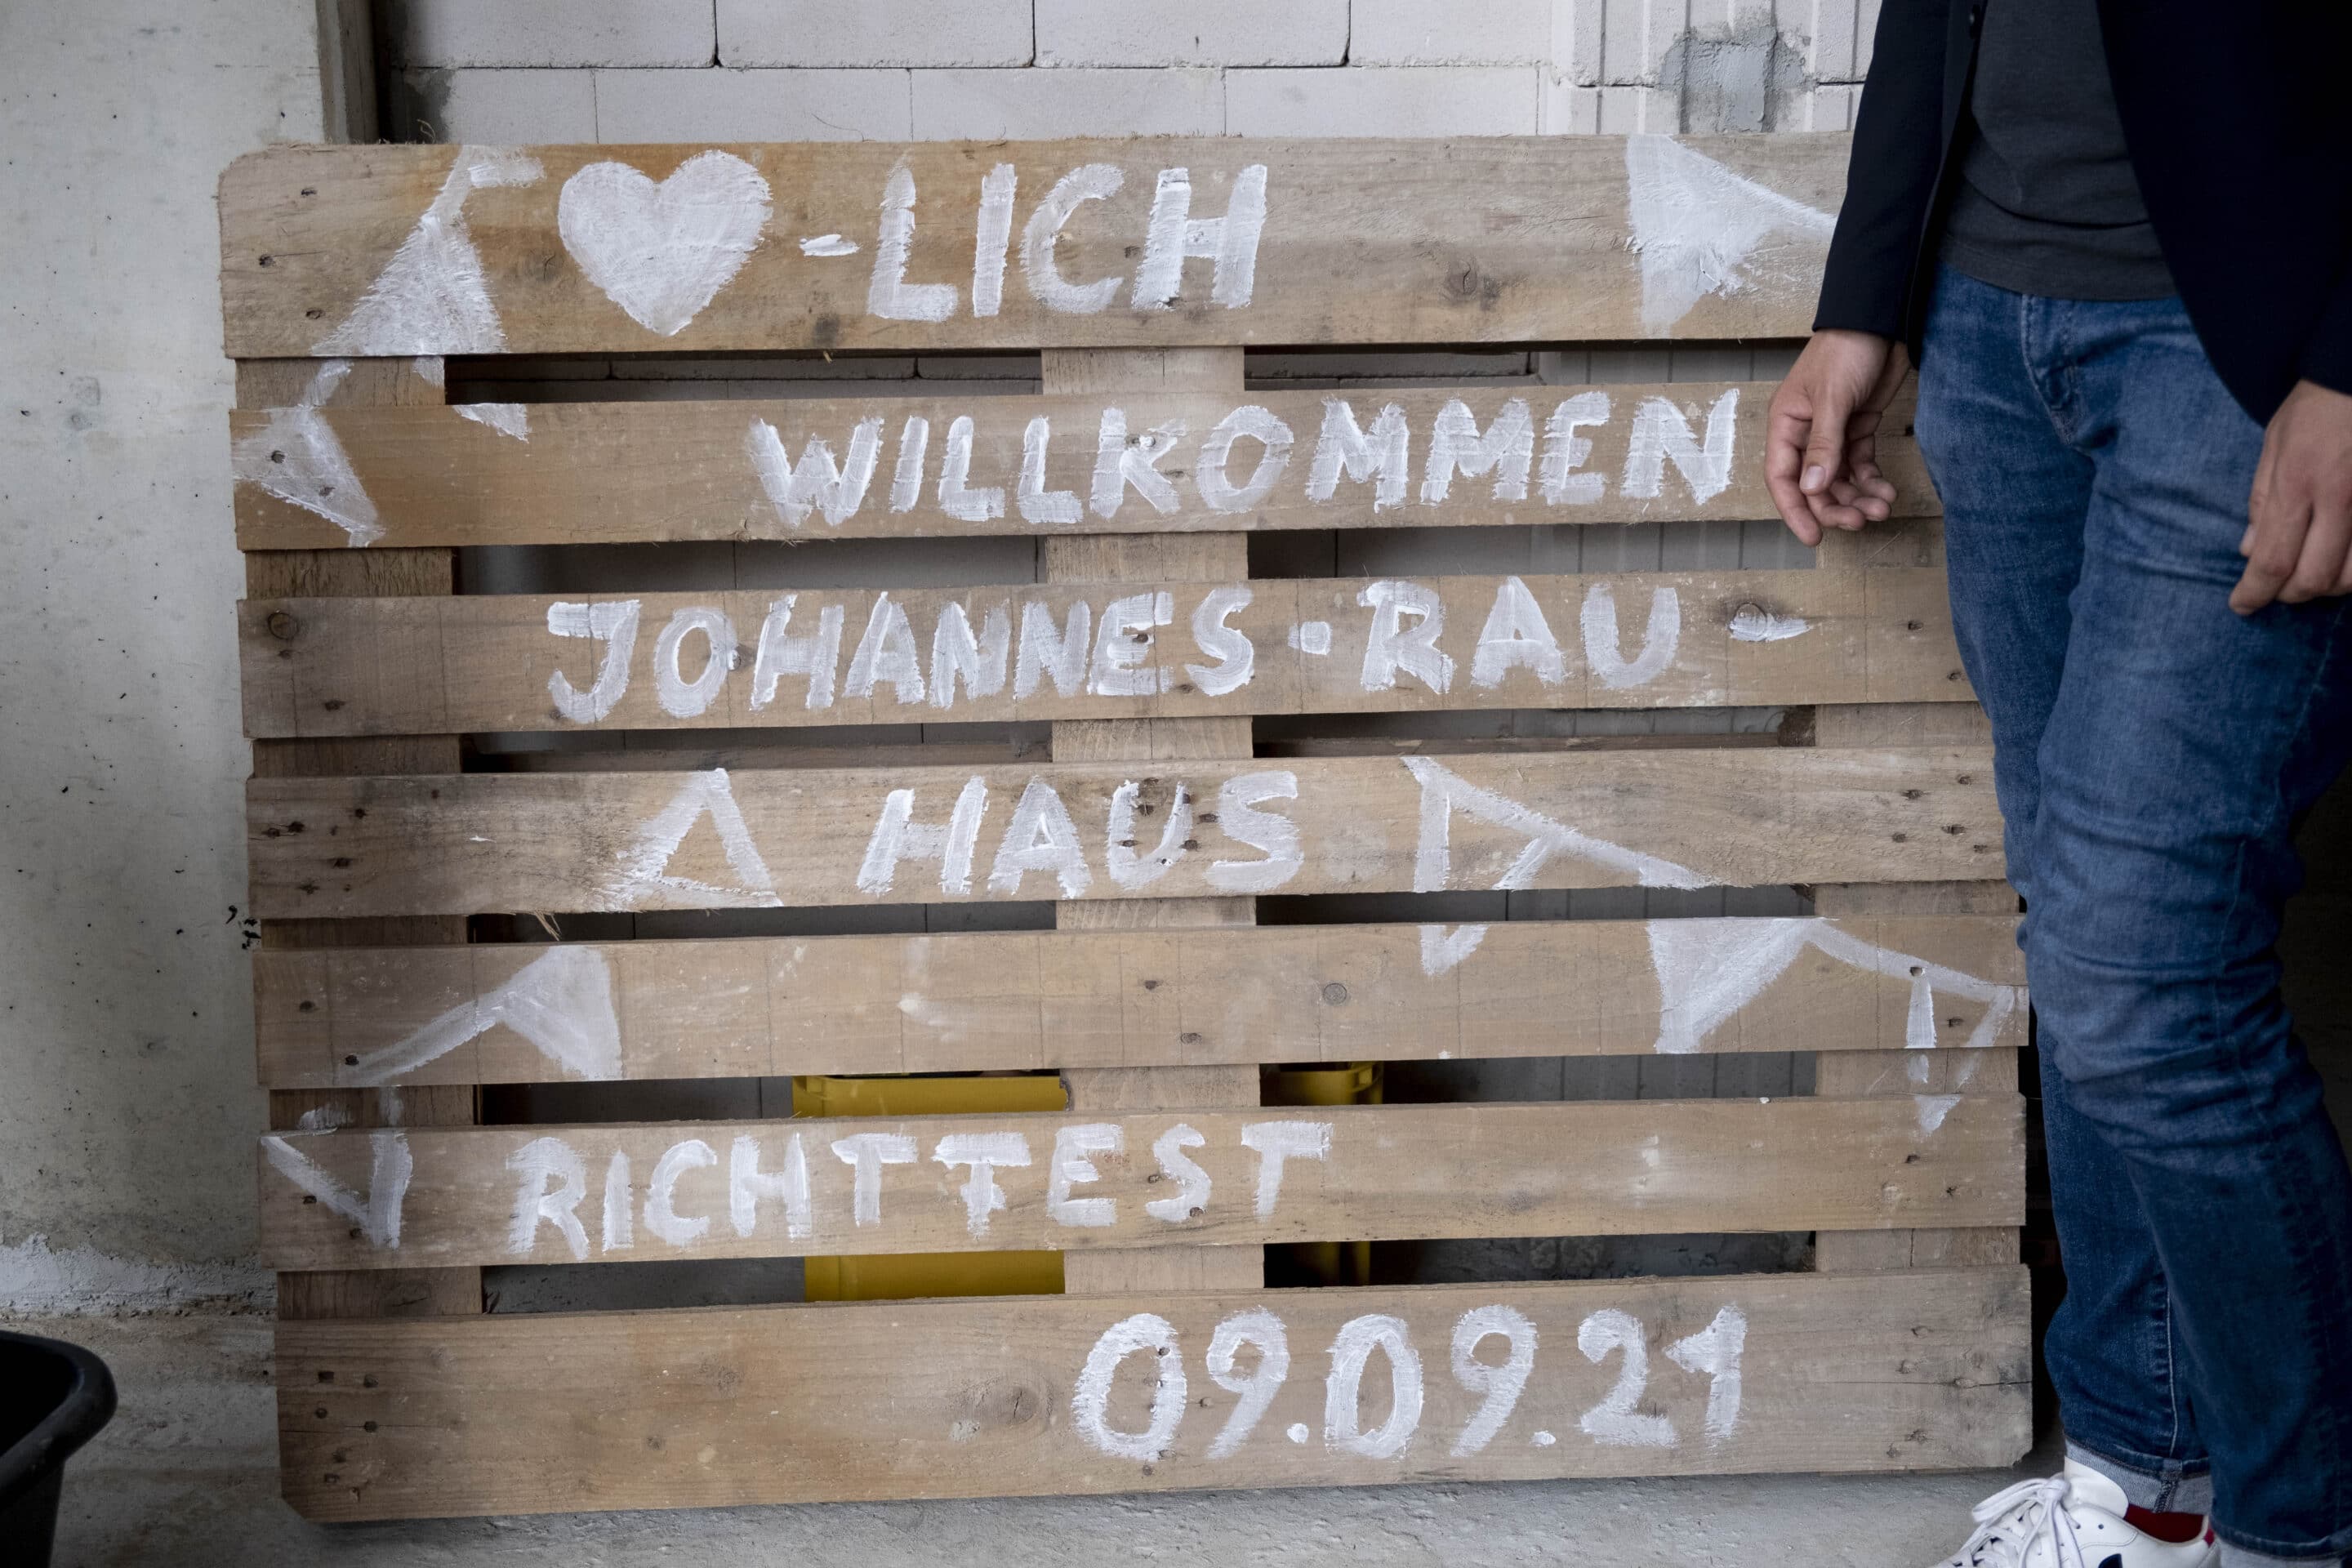 ♥-LICH
WILLKOMMEN
JOHANNES-RAU-
HAUS
RICHTFEST
09.09.21